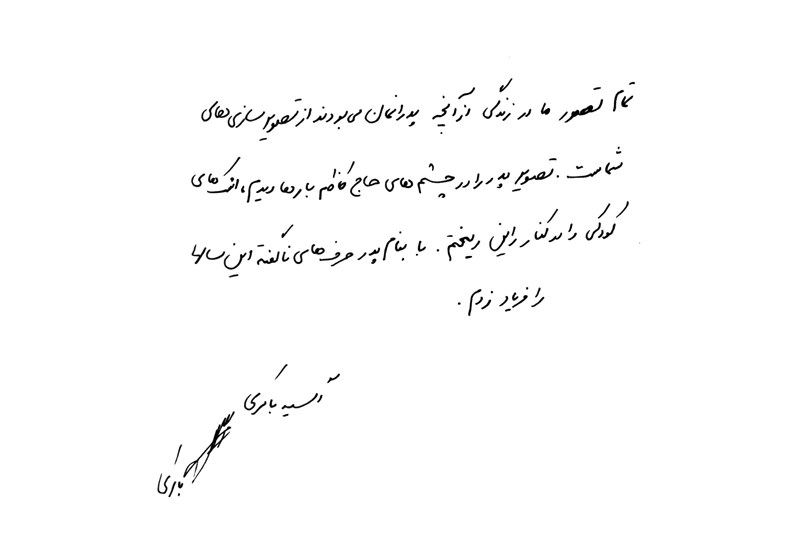 تمام تصور ما در زندگی از آنچه پدرانمان می‌بودند از تصویرسازی‌های
شماست. تصویر پدر را در چشم‌های حاج کاظم بارها دیدیم، اشک‌های
کودکی را در کنار راین ریختم. با بنام پدر حرف‌های ناگفته این سالها
را فریاد زدم.
آسیه باکری
باکری